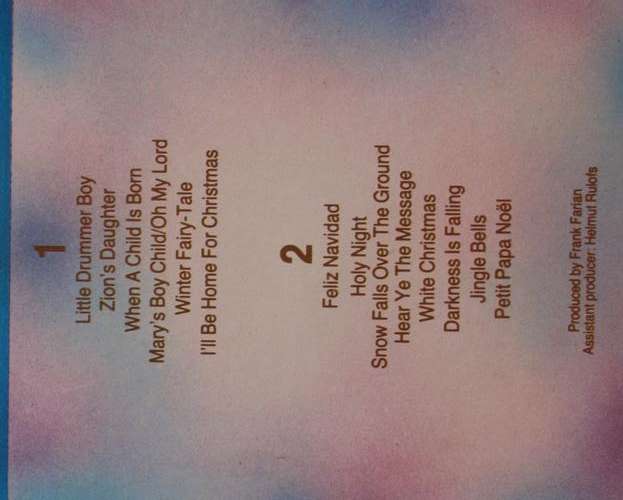 1
Little Drummer Boy
Zion's Daughter
When A Child Is Born
Mary's Boy Child/Oh My Lord
Winter Fairy-Tale
I'll Be Home For Christmas
2
Feliz Navidad
Holy Night
Snow Falls Over The Ground
Hear Ye The Message
White Christmas
Darkness Is Falling
Jingle Bells
Petit Papa Noël
Produced by Frank Farian
Assistant producer: Helmut Rulofs